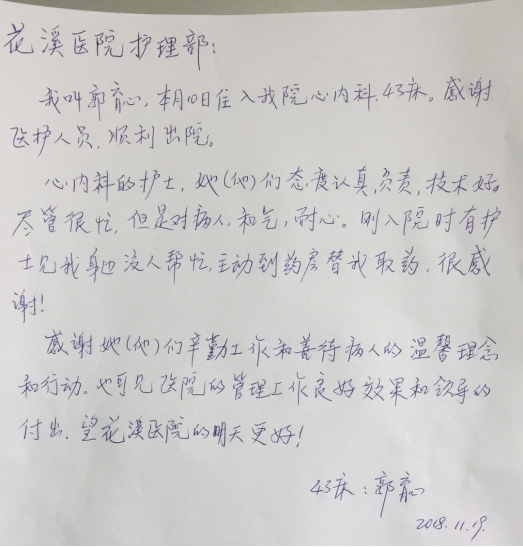 花溪医院护理部:
我叫郭育心,本月10日住入我院心内科,43床。感谢
医护人员,顺利出院。
心内科的护士,她(他)们态度认真,负责,技术好。
尽管很忙,但是对病人,和气,耐心。刚入院时有护
士见我身边没人帮忙,主动到药房替我取药,很感
谢!
感谢她(他)们辛勤工作和善待病人的温馨理念
和行动。也可见医院的管理工作良好效果和领导的
付出,望花溪医院的明天更好!
43床:郭育心
2018.11.19.